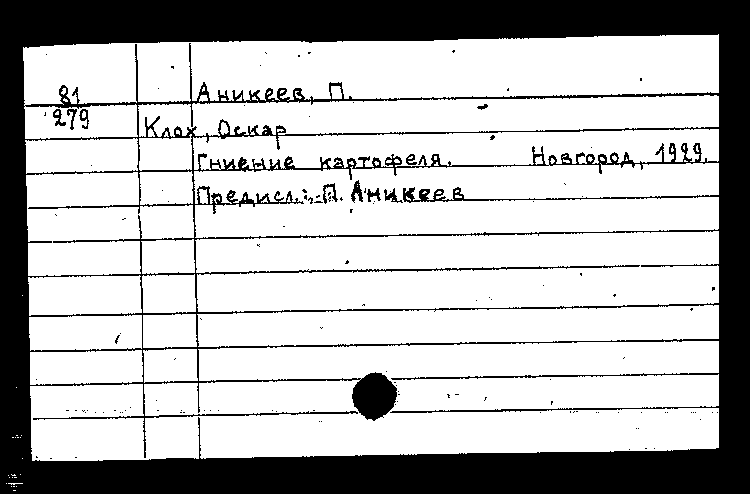 81 Аникеев, П.
279
Клох, Оскар
Гниение картофеля. Новгород, 1929.
Предисл.: П. Аникеев